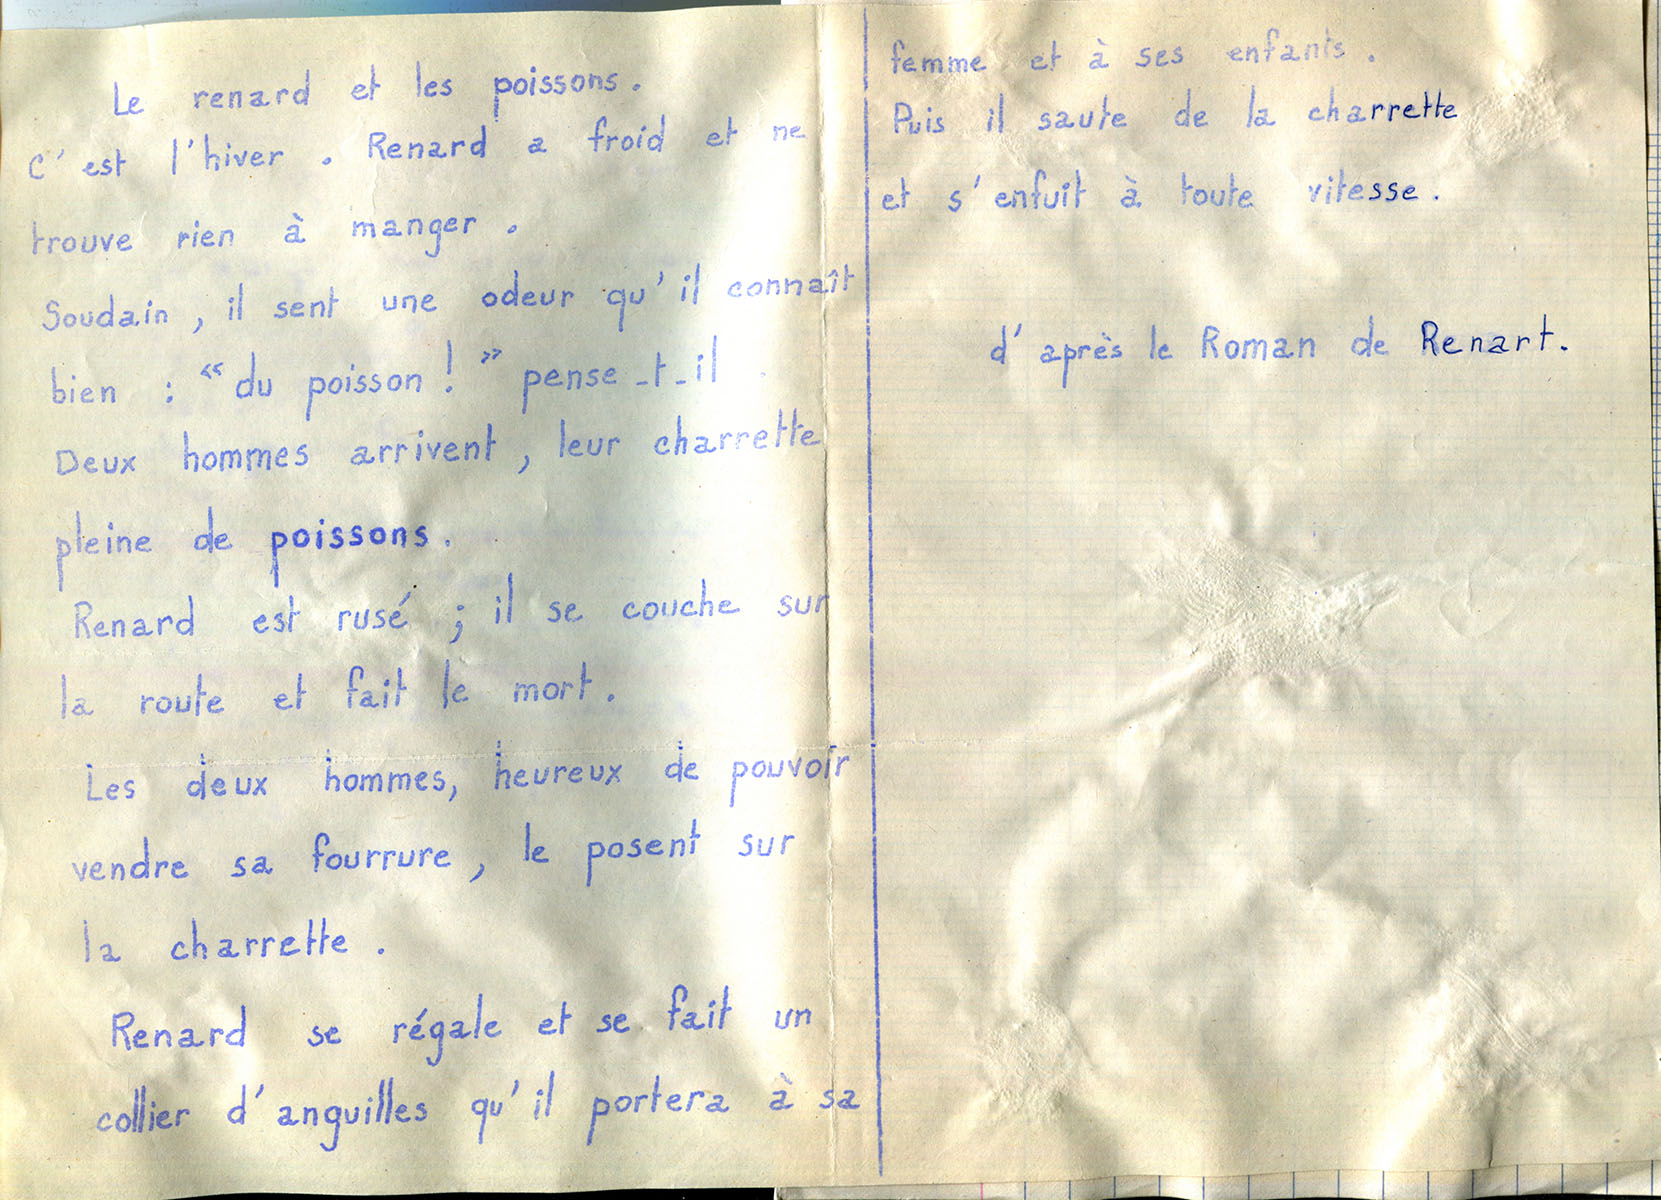 Le renard et les poissons.
C'est l'hiver. Renard a froid et ne
trouve rien à manger.
Soudain, il sent une odeur qu'il connaît
bien : "du poisson !" pense-t-il.
Deux hommes arrivent, leur charrette
pleine de poissons.
Renard est rusé ; il se couche sur
la route et fait le mort.
Les deux hommes, heureux de pouvoir
vendre sa fourrure, le posent sur
la charrette.
Renard se régale et se fait un
collier d'anguilles qu'il portera à sa
femme et à ses enfants.
Puis il saute de la charrette
et s'enfuit à toute vitesse.
d'après le Roman de Renart.